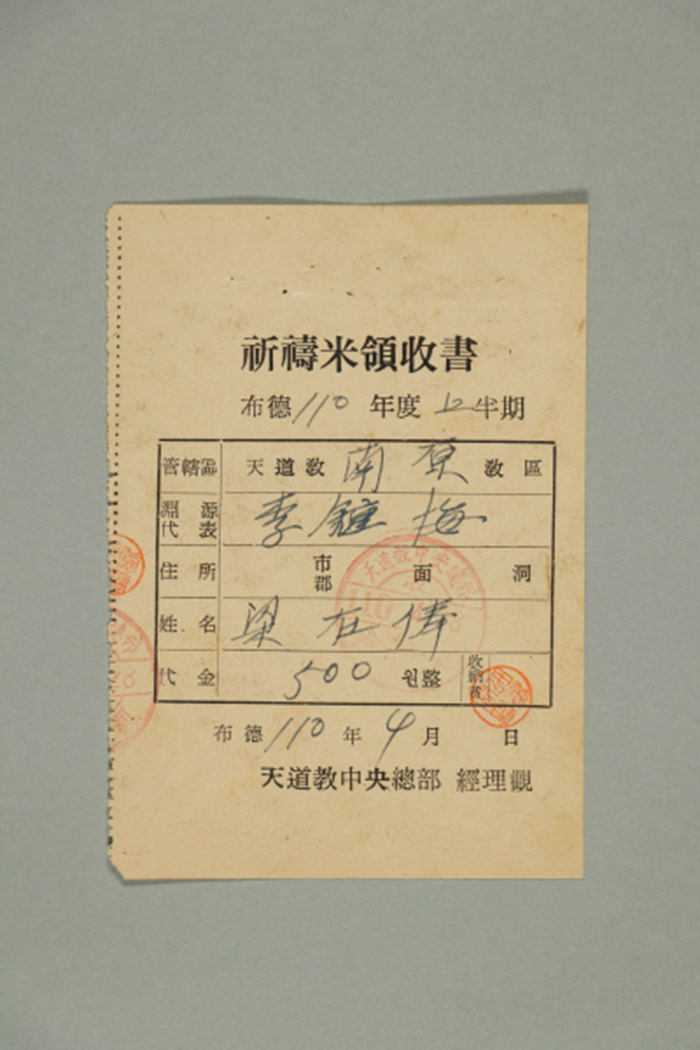 祈禱米領收書
布德 110 年度 上半期
管轄區 天道敎 南原 敎區
淵源代表 李鍾梅
住所 市郡 面 洞
姓名 梁在俸
代金 500 원整 收納者
布德 110 年 4 月 日
天道敎中央總部 經理觀